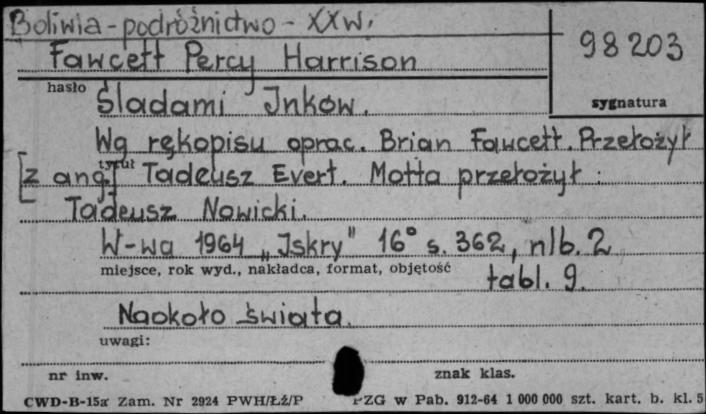 Boliwia - podróżnictwo - XXw.
98203
Fawcett Percy Harrison
hasło
Śladami Inków.
sygnatura
Wg rękopisu oprac. Brian Fawcett. Przełożył
[z ang.] Tadeusz Evert. Motta przełożył :
tytuł
Tadeusz Nowicki.
W-wa 1964 „Iskry" 16° s. 362, nlb. 2
miejsce, rok wyd., nakładca, format, objętość
tabl. 9.
Naokoło świata.
uwagi:
nr inw.
znak klas.
CWD-B-15a Zam. Nr 2924 PWH/Łż/P
PZG w Pab. 912-64 1 000 000 szt. kart. b. kl. 5